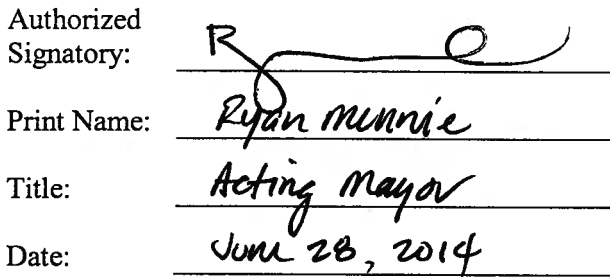 Authorized
Signatory:
Print Name: Ryan Minnie
Title: Acting Mayor
Date: June 28, 2014